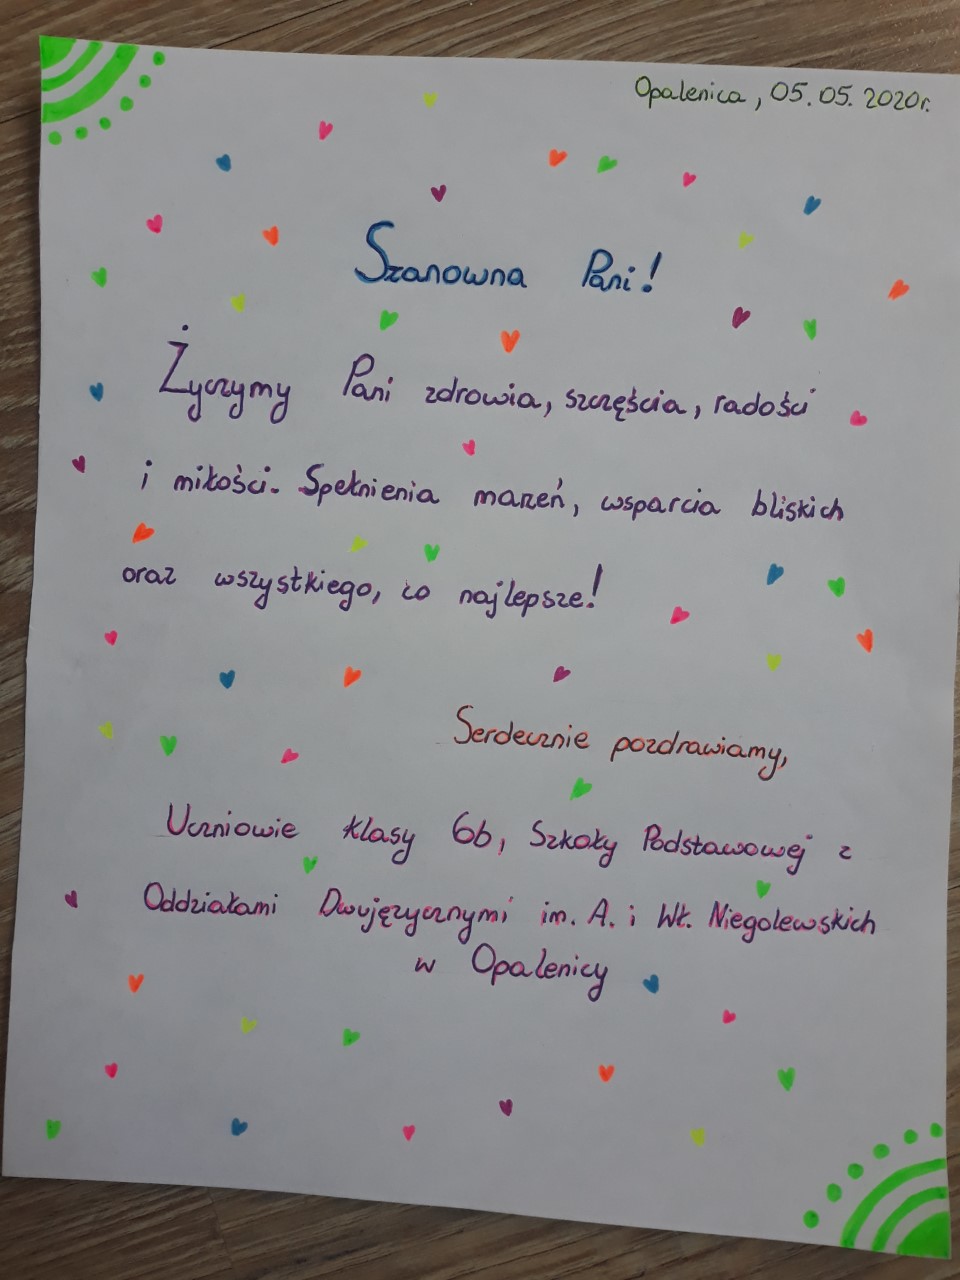 Opalenica, 05.05.2020r.
Szanowna Pani!
Życzymy Pani zdrowia, szczęścia, radości
i miłości. Spełnienia marzeń, wsparcia bliskich
oraz wszystkiego, co najlepsze!
Serdecznie pozdrawiamy,
Uczniowie klasy 6b, Szkoły Podstawowej z
Oddziałami Dwujęzycznymi im. A. i Wł. Niegolewskich
w Opalenicy